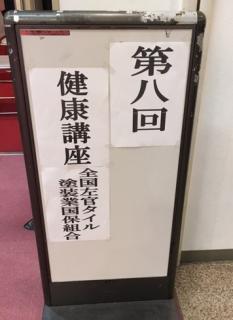 第八回
健康講座
全国左官タイル
塗装業国保組合